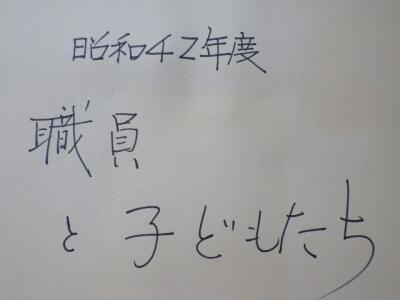 昭和42年度
職員
と子どもたち